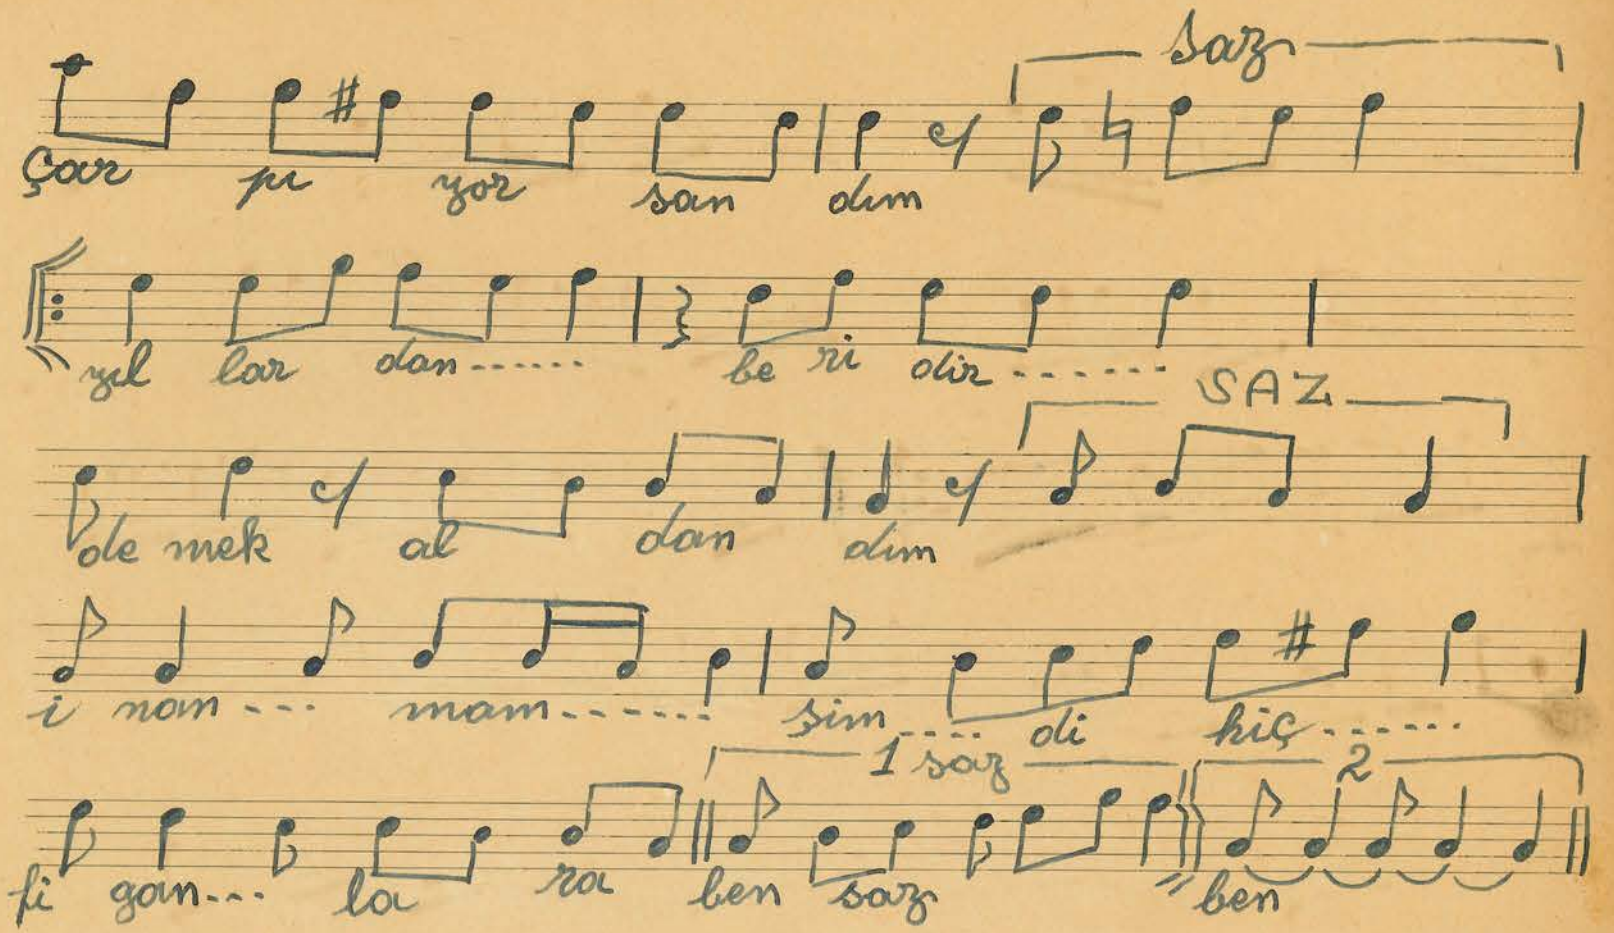 saz
Çar pı yor san dım
yıl lar dan------ be ri dir-------
SAZ
de mek al dan dım
i nan--- mam------- şim..... di hiç-------
1 saz 2
fi gan--- la ra ben saz ben